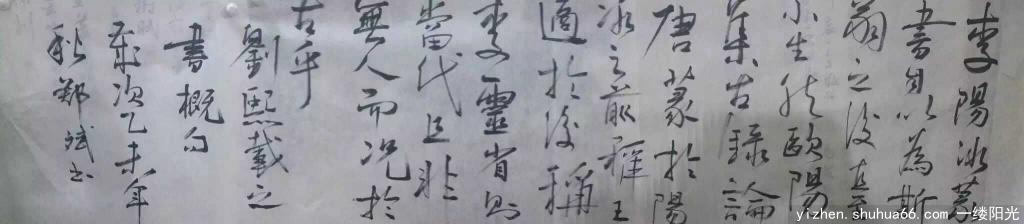 李陽冰篆
書自以為斯
翁之後直至
小生然歐陽
集古錄論
唐篆於陽
冰之前稱王
適於後稱
李靈省則
當代且非
無人而況於
古乎
劉熙載之
書概句
歲次乙未年
秋鄭斌書
yizhen.shuhua66.com/一缕阳光